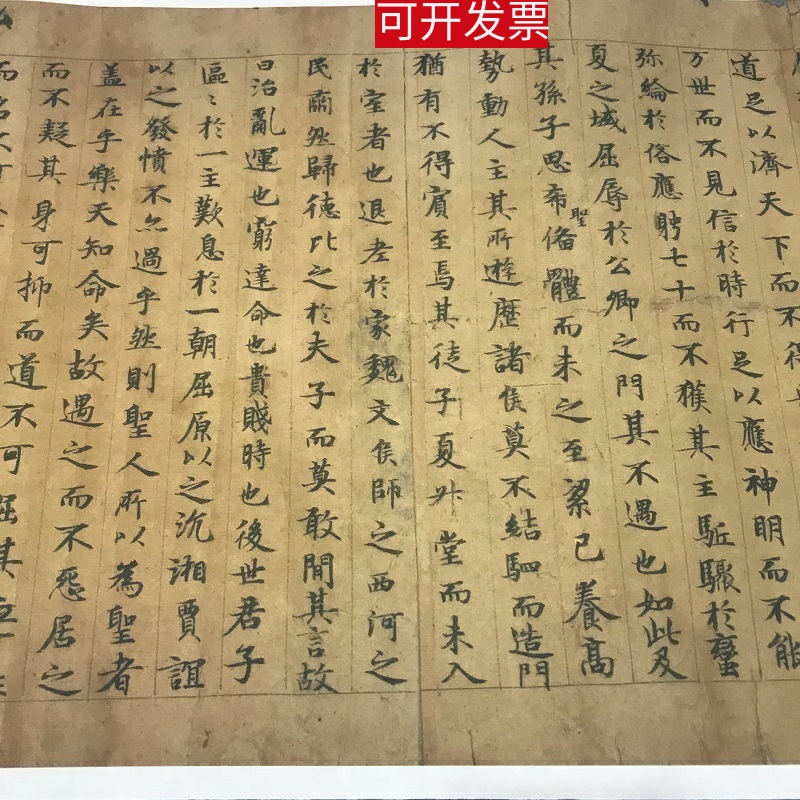 可开发票
道足以濟天下而不得
万世而不見信於時行足以應神明而不能
弥綸於俗應聘七十而不獲其主駈驟於蠻
夏之域屈辱於公卿之門其不遇也如此及
其孫子思希聖俻體而未之至梁己養高
勢動人主其所遊歷諸侯莫不結駟而造門
猶有不得賓至焉其徒子夏升堂而未入
於室者也退老於家魏文侯師之西河之
民肅然歸德比之於夫子而莫敢間其言故
曰治亂運也窮達命也貴賤時也後世君子
區〻於一主歎息於一朝屈原以之沉湘賈誼
以之發憤不亦過乎然則聖人所以為聖者
盖在乎樂天知命矣故遇之而不惌居之
而不疑其身可抑而道不可屈其
而名不可